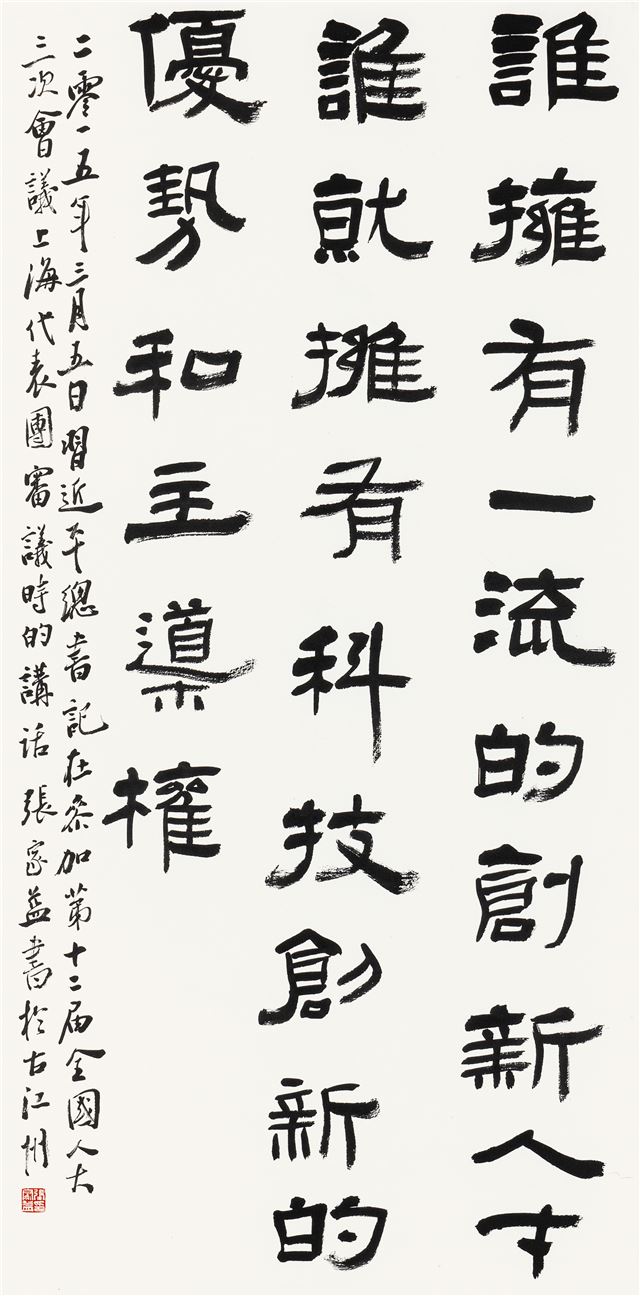 誰擁有一流的創新人才
誰就擁有科技創新的
優勢和主導權
二零一五年三月五日習近平總書記在參加第十二屆全國人大
三次會議上海代表團審議時的講話 張家益書於古江州